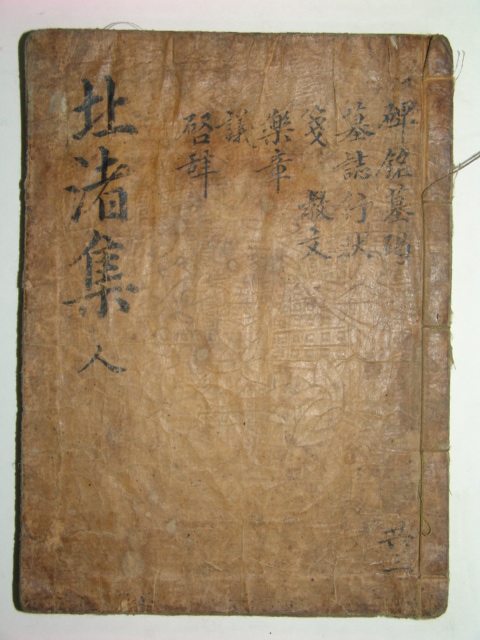 碑銘墓碣
墓誌行狀
箋 教文
樂章
議
啓辭
北渚集 人